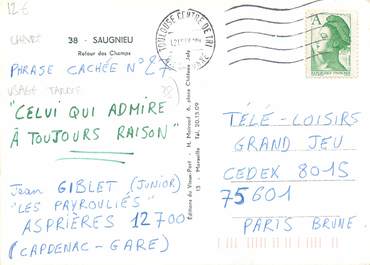 12€
38 - SAUGNIEU
Retour des Champs
PHRASE CACHÉE N°27
USAGE TARDIF
"CELUI QUI ADMIRE
À TOUJOURS RAISON"
Jean GIBLET (JUNIOR)
"LES PAYROULIÉS"
ASPRIÈRES 12700
(CAPDENAC-GARE)
Editions du Vieux-Port - H. Moiroud 6, place Châteu Joly
13 - Marseille Tél. 20.15.09
TOULOUSE CENTRE DE TRI
A
RÉPUBLIQUE FRANÇAISE
TÉLÉ-LOISIRS
GRAND JEU
CEDEX 8015
75601
PARIS BRUNE.